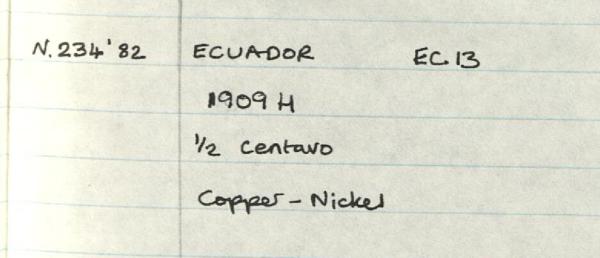 N.234'82 ECUADOR EC.13
1909 H
1/2 Centavo
Copper-Nickel